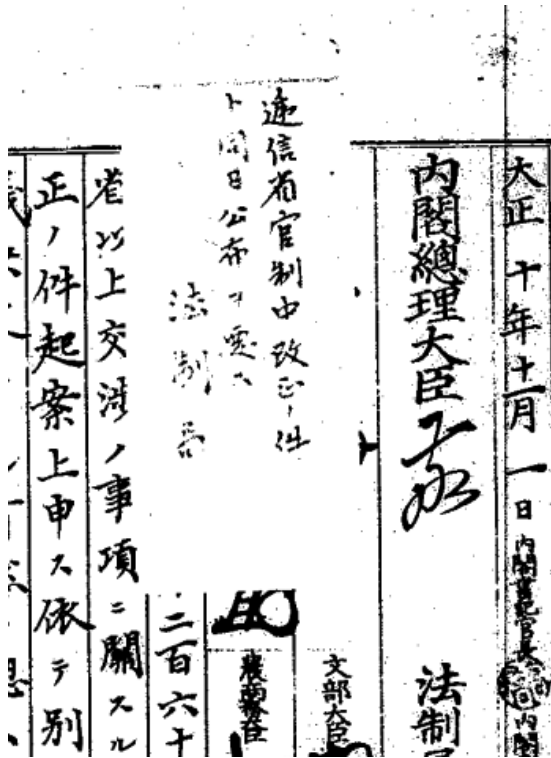 大正十年十一月一日 内閣書記官長 内閣
内閣總理大臣
法制
文部大臣
農商務大臣
遞信省官制中改正ノ件
ト同日公布ヲ要ス
法制局
二百六十
省以上交渉ノ事項ニ關スル
正ノ件起案上申ス依テ別